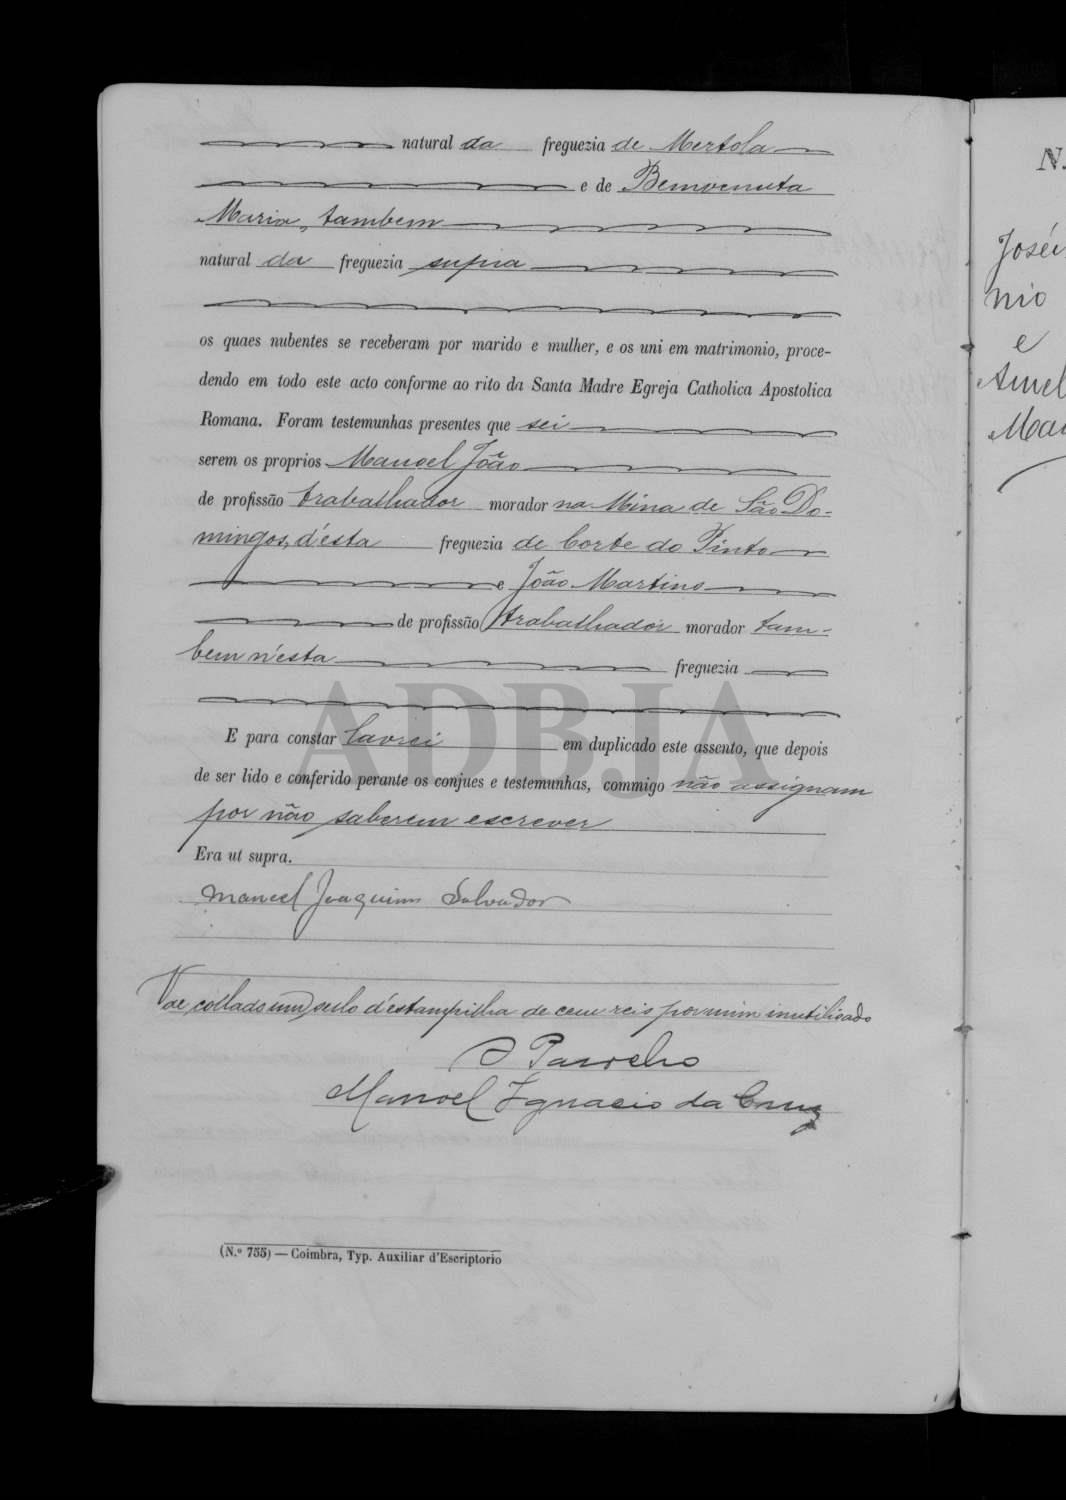 natural da freguezia de Mertola
e de Bemvenuta
Maria, tambem
natural da freguezia supra
os quaes nubentes se receberam por marido e mulher, e os uni em matrimonio, proce-
dendo em todo este acto conforme ao rito da Santa Madre Egreja Catholica Apostolica
Romana. Foram testemunhas presentes que sei
serem os proprios Manoel João
de profissão trabalhador morador na Mina de São Do-
mingos, d'esta freguezia de Corte do Pinto
e João Martins
de profissão trabalhador morador tam-
bem n'esta freguezia
ADBJA
E para constar lavrei em duplicado este assento, que depois
de ser lido e conferido perante os conjues e testemunhas, commigo não assignam
por não saberem escrever
Era ut supra.
Manoel Joaquim Salvador
Vae collado um sello d'estampilha de cem reis por mim inutilisado
O Parocho
Manoel Ignacio da Cruz
(N.º 755) — Coimbra, Typ. Auxiliar d'Escriptorio
N.
José
nio
e
Amel
Mar